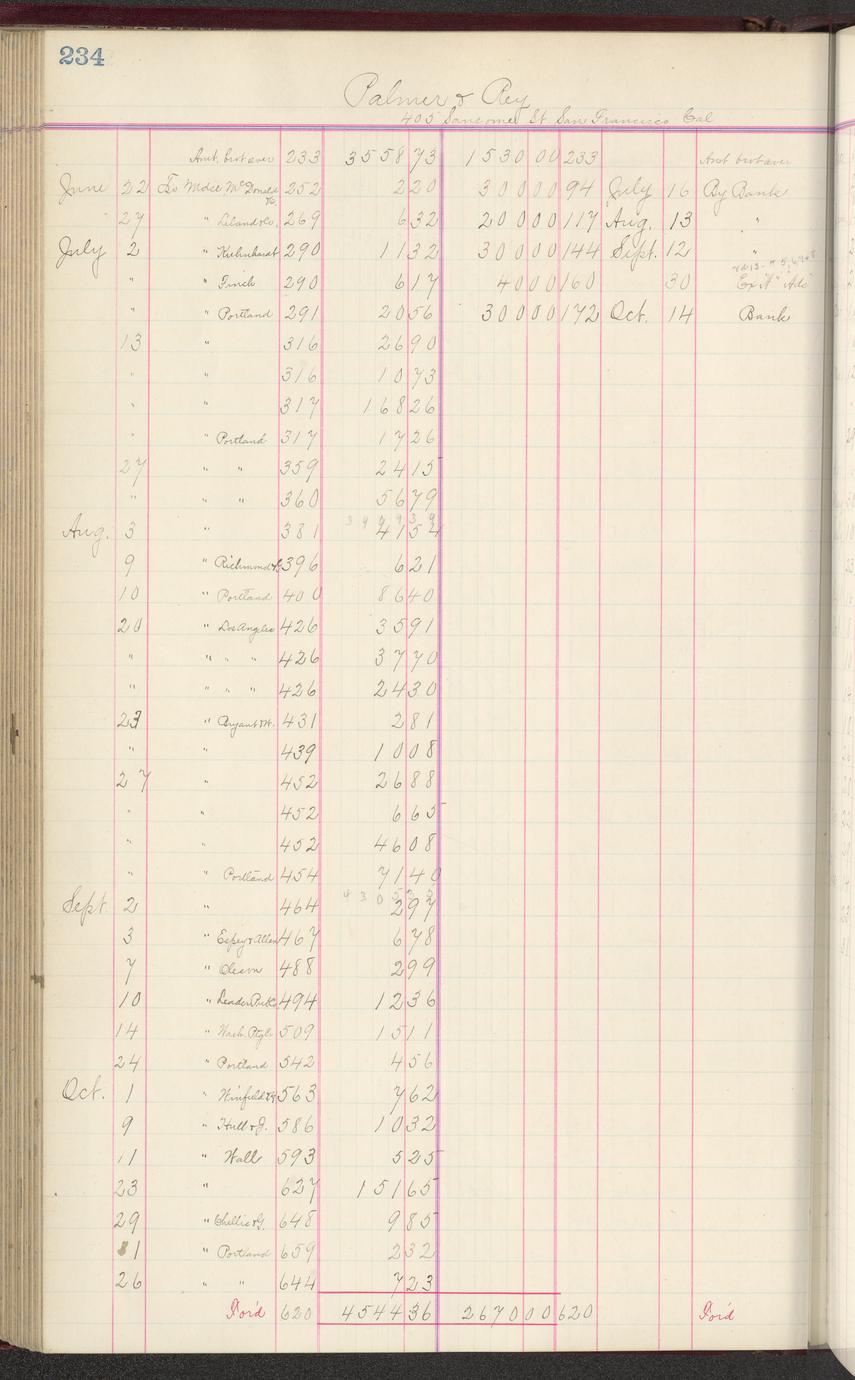 234
Palmer & Rey
405 Sansome St San Francisco Cal
Amt. brot over 233 3558 73 1530 00 233 Amt brot over
June 22 To Mdse McDonald Co. 252 2 20 300 00 94 July 16 By Bank
27 " Leland & Co. 269 6 32 200 00 117 Aug. 13 "
July 2 " Kuhnhardt 290 11 32 300 00 144 Sept. 12 "
" " Finch 290 6 17 40 00 160 30 Ex "A" Ads
" " Portland 291 20 56 300 00 172 Oct. 14 Bank
13 " 316 26 90
" " 316 10 73
" " 317 168 26
" " Portland 317 17 26
27 " " 359 24 15
" " " 360 56 79
3 9 9 9 3 9
Aug. 3 " 381 41 54
9 " Richmond & 396 6 21
10 " Portland 400 86 40
20 " Los Angeles 426 35 91
" " " " 426 37 70
" " " " 426 24 30
23 " Bryant & W. 431 2 81
" " 439 10 08
27 " 452 26 88
" " 452 6 65
" " 452 46 08
" " Portland 454 71 40
4 3 0 5
Sept. 2 " 464 2 97
3 " Espey & Allen 467 6 78
7 " Oleson 488 2 99
10 " Leader Pub Co. 494 12 36
14 " Wash. Ptg Co 509 15 11
24 " Portland 542 4 56
Oct. 1 " Winfield & 563 7 62
9 " Hull & J. 586 10 32
11 " Wall 593 5 25
23 " 627 151 65
29 " Chellis & G. 648 9 85
31 " Portland 659 2 32
26 " " 644 7 23
For'd 620 4544 36 2670 00 620 For'd